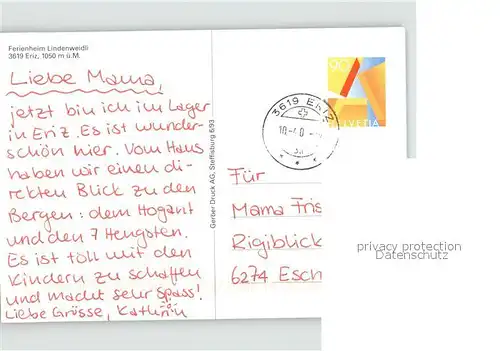 Ferienheim Lindenweidli
3619 Eriz, 1050 m ü.M.
Liebe Mama,
jetzt bin ich im Lager
in Eriz. Es ist wunder-
schön hier. Vom Haus
haben wir einen di-
rekten Blick zu den
Bergen: dem Hogant
und den 7 Hengsten.
Es ist toll mit den
Kindern zu schaffen
und macht sehr Spass!
Liebe Grüsse, Kathrin
Gerber Druck AG, Steffisburg 6/93
90
HELVETIA
3619 ERIZ
Für
Mama Fris
Rigiblick
6274 Esch
privacy protection
Datenschutz